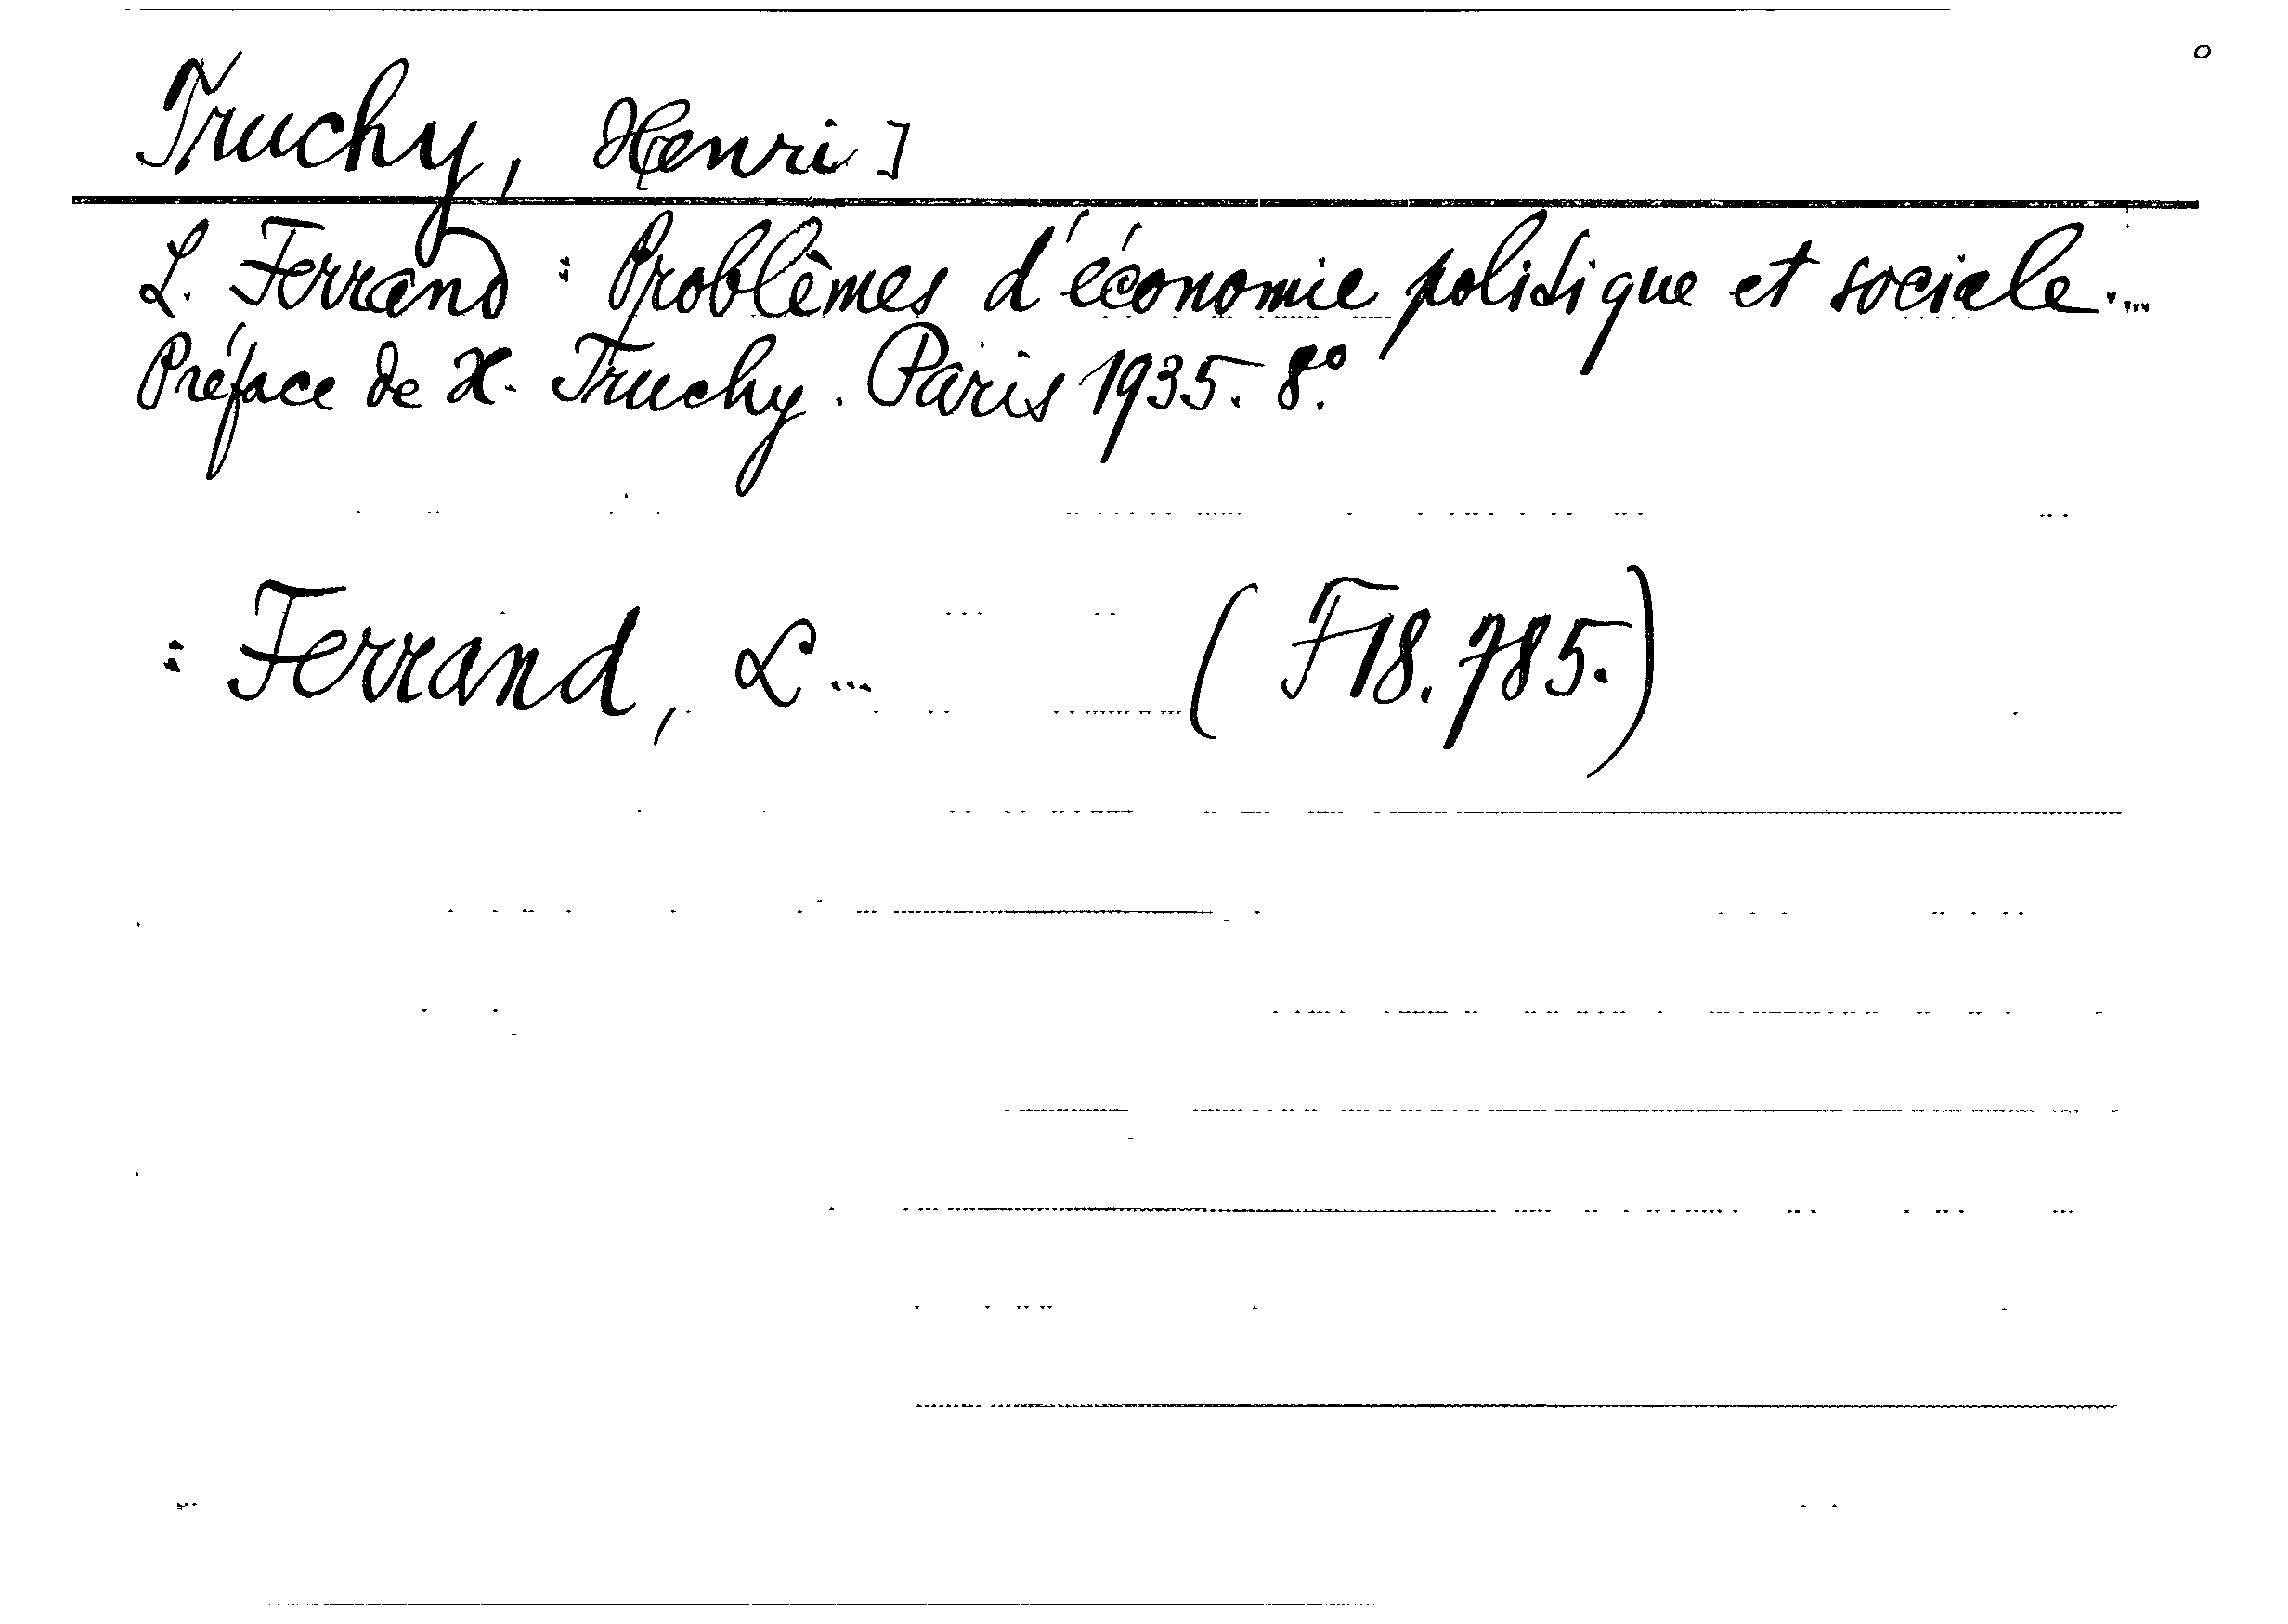 Truchy, Henri]
L. Ferrand : Problèmes d'économie politique et sociale...
Préface de H. Truchy. Paris 1935. 8°.
: Ferrand, L... (F18.785.)